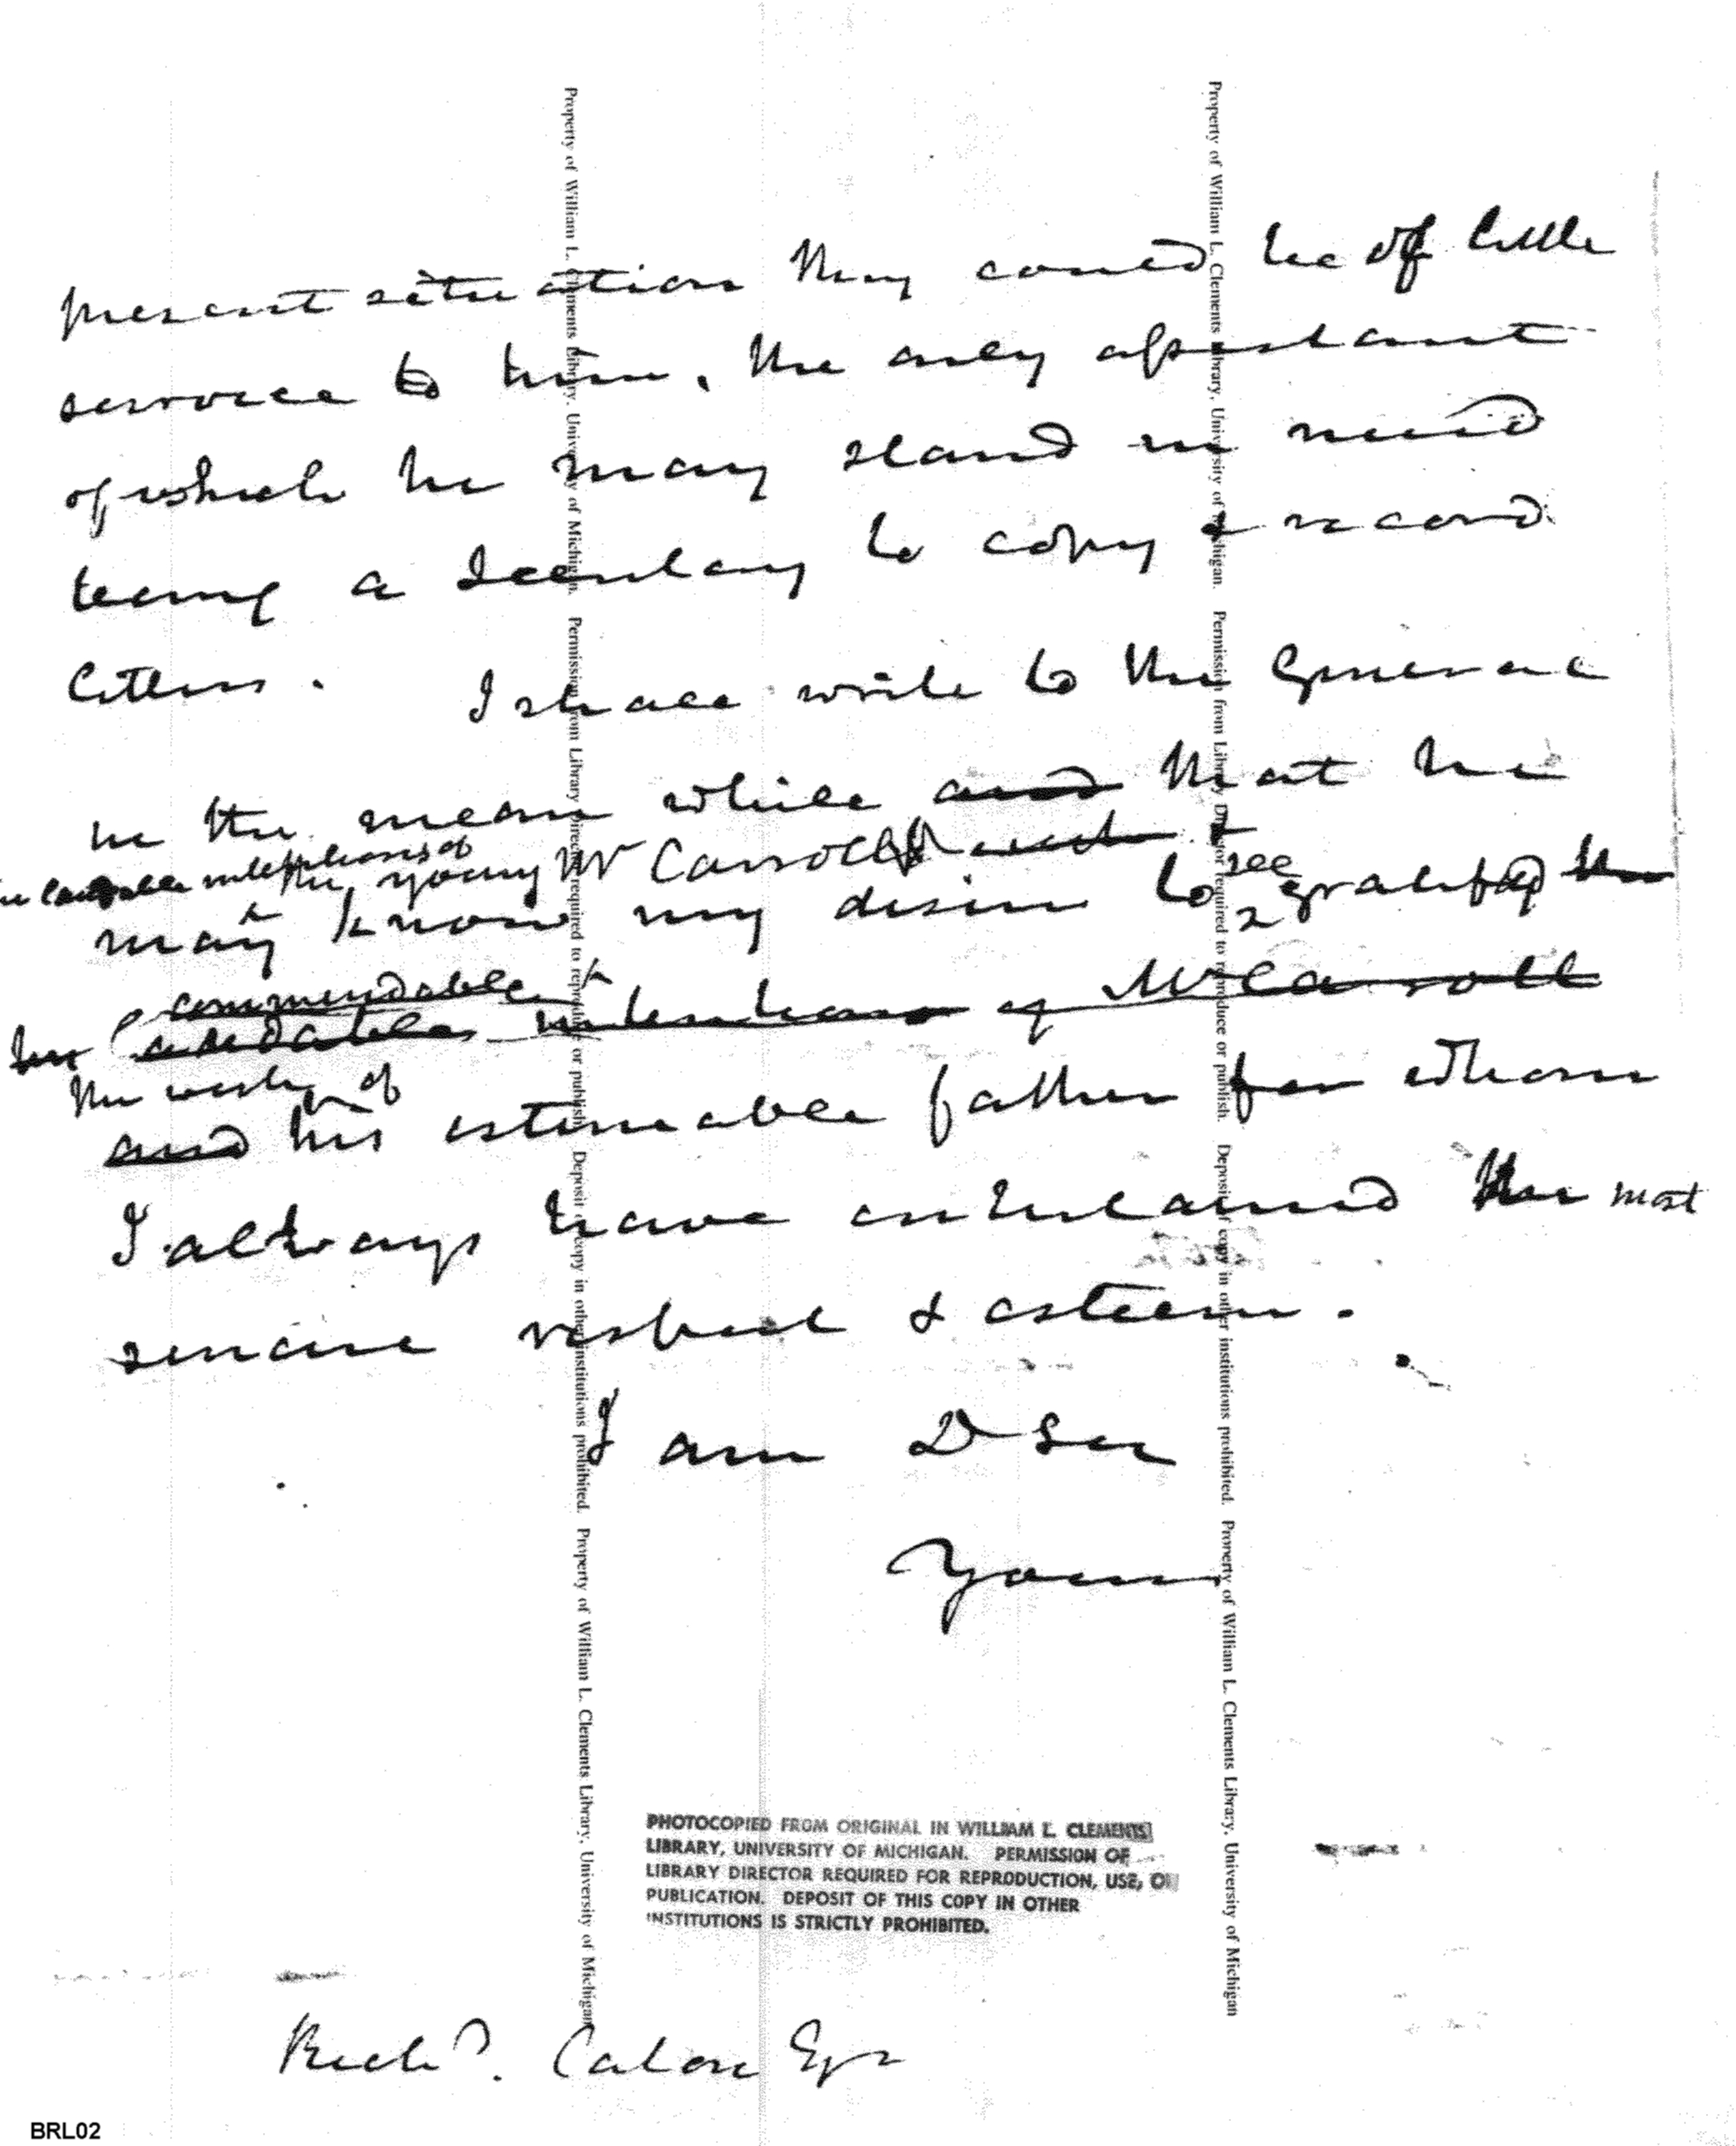 present situation they could be of little
service to him, the only assistant
of which he may stand in need
being a Secretary to copy & record
letters. I shall write to the General
in the mean while and that he
intentions of the young Mr Carroll
may know my desire to see gratifyd the
commendable
laudable intentions of Mr Carroll
the wishes of
and his estimable father for whom
I always have entertained the most
sincere respect & esteem.
I am Dr Sir
Yours
PHOTOCOPIED FROM ORIGINAL IN WILLIAM L. CLEMENTS
LIBRARY, UNIVERSITY OF MICHIGAN. PERMISSION OF
LIBRARY DIRECTOR REQUIRED FOR REPRODUCTION, USE, OR
PUBLICATION. DEPOSIT OF THIS COPY IN OTHER
INSTITUTIONS IS STRICTLY PROHIBITED.
Richd. Caton Esqr
BRL02
Property of William L. Clements Library, University of Michigan. Permission from Library Director required to reproduce or publish. Deposit of copy in other institutions prohibited. Property of William L. Clements Library, University of Michigan
Property of William L. Clements Library, University of Michigan. Permission from Library Director required to reproduce or publish. Deposit of copy in other institutions prohibited. Property of William L. Clements Library, University of Michigan